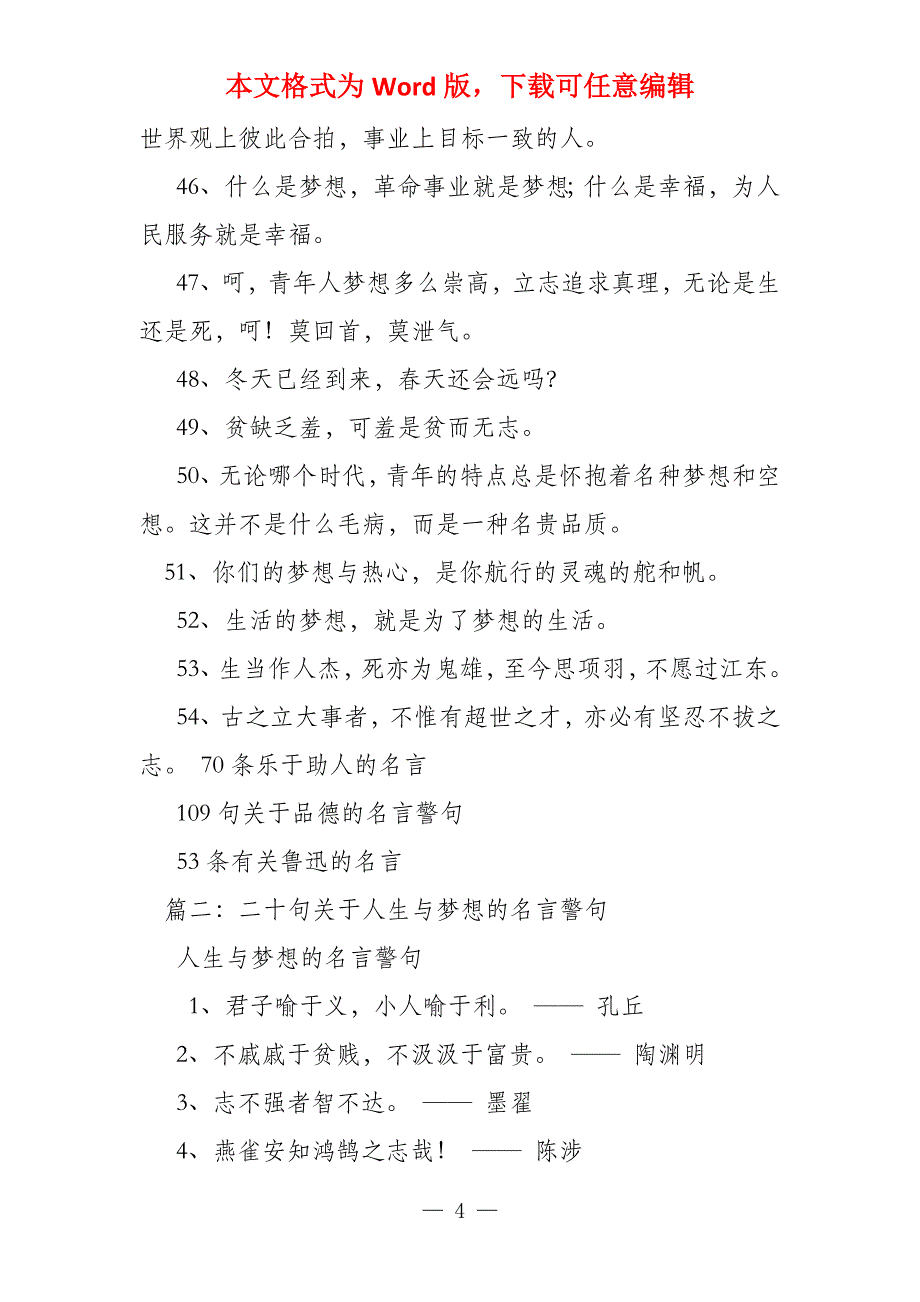 本文格式为 Word 版，下载可任意编辑
世界观上彼此合拍，事业上目标一致的人。
46、什么是梦想，革命事业就是梦想；什么是幸福，为人
民服务就是幸福。
47、呵，青年人梦想多么崇高，立志追求真理，无论是生
还是死，呵！莫回首，莫泄气。
48、冬天已经到来，春天还会远吗？
49、贫缺乏羞，可羞是贫而无志。
50、无论哪个时代，青年的特点总是怀抱着名种梦想和空
想。这并不是什么毛病，而是一种名贵品质。
51、你们的梦想与热心，是你航行的灵魂的舵和帆。
52、生活的梦想，就是为了梦想的生活。
53、生当作人杰，死亦为鬼雄，至今思项羽，不愿过江东。
54、古之立大事者，不惟有超世之才，亦必有坚忍不拔之
志。 70 条乐于助人的名言
109 句关于品德的名言警句
53 条有关鲁迅的名言
篇二：二十句关于人生与梦想的名言警句
人生与梦想的名言警句
1、君子喻于义，小人喻于利。 —— 孔丘
2、不戚戚于贫贱，不汲汲于富贵。 —— 陶渊明
3、志不强者智不达。 —— 墨翟
4、燕雀安知鸿鹄之志哉！ —— 陈涉
— 4 —